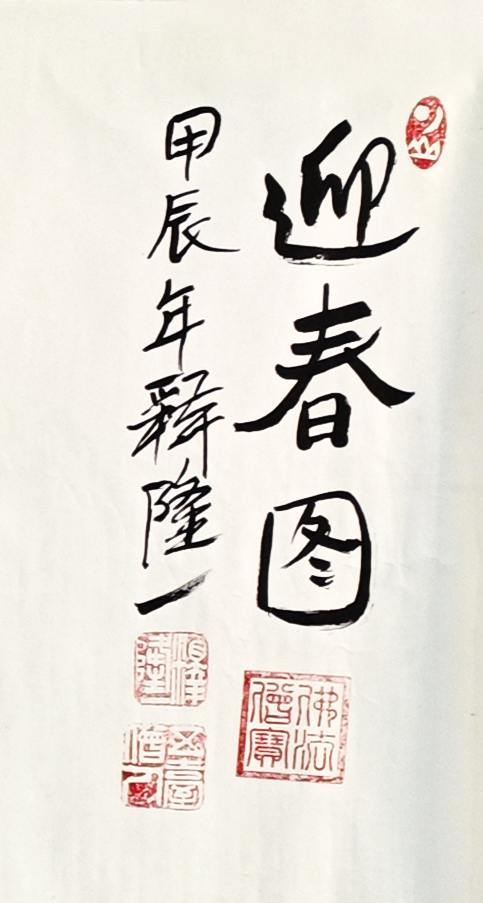 迎春图
甲辰年释隆一
佛法僧寶